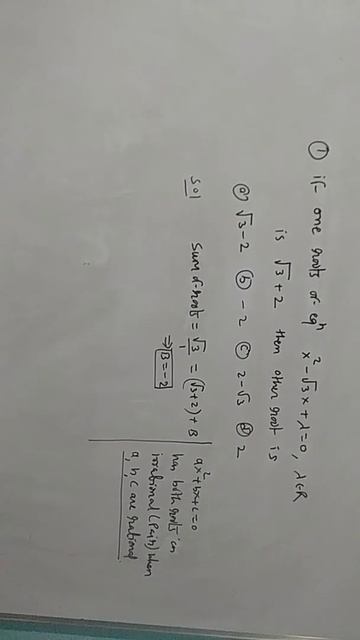 ① if one roots of eqⁿ x² - √3x + λ = 0, λ ∈ R
is √3 + 2 then other root is
ⓐ √3 - 2 ⓑ - 2 ⓒ 2 - √3 ⓓ 2
Sol Sum of roots = √3/1 = (√3+2) + β
⇒ β = -2
ax² + bx + c = 0
has both roots in
irrational (Pair) when
a, b, c are rational